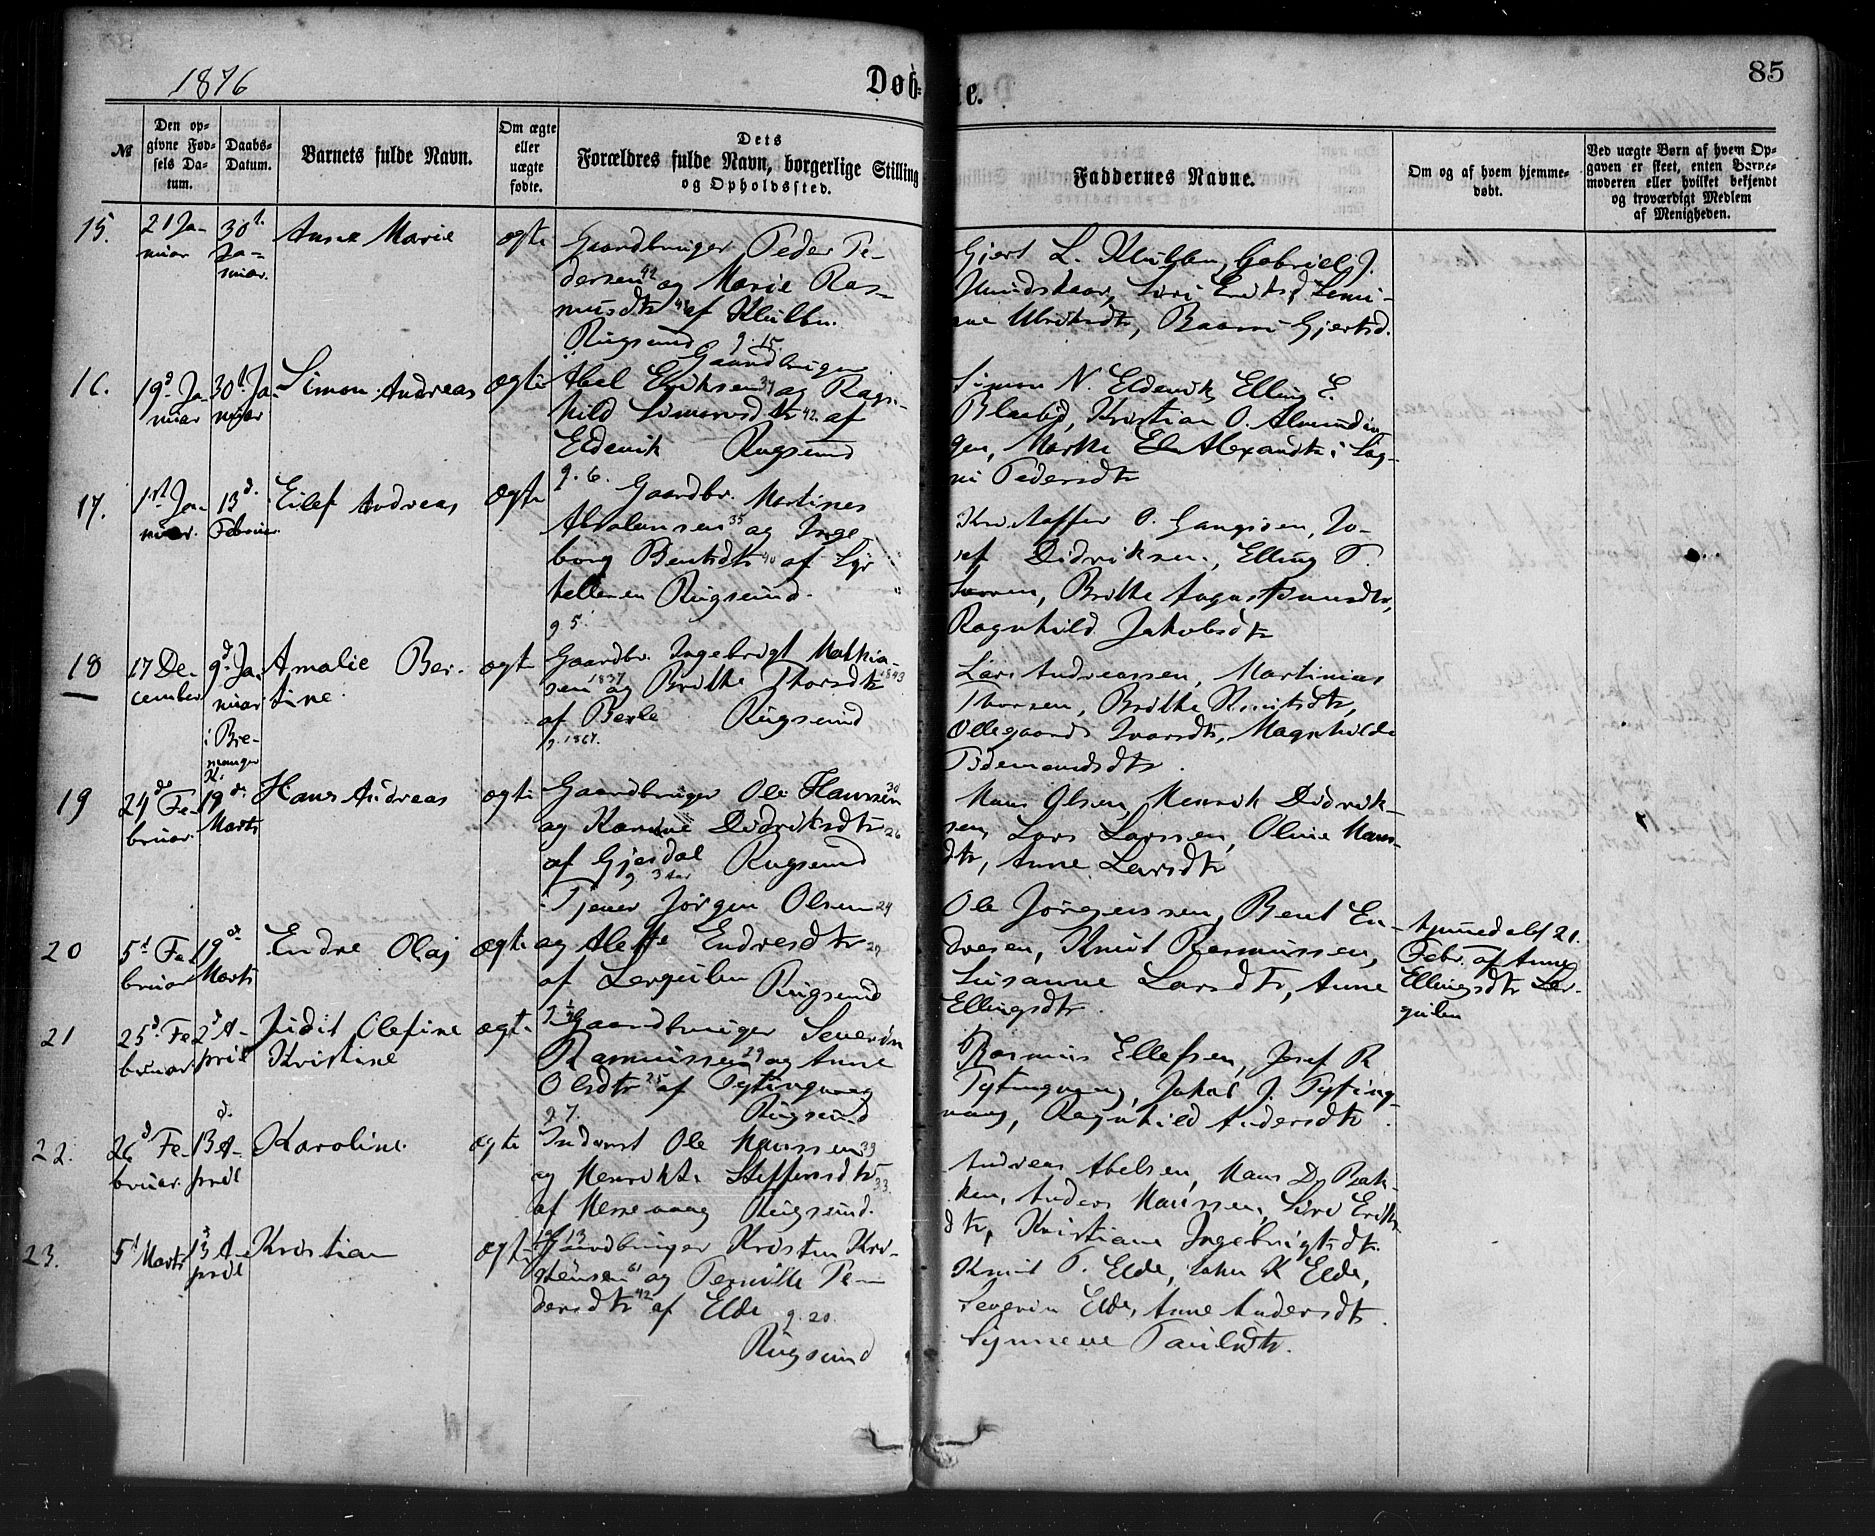 1876
Døbte.
85
№
Den opgivne Fødsels Datum.
Daabs-Datum.
Barnets fulde Navn.
Om ægte eller uægte fødte.
Dets Forældres fulde Navn, borgerlige Stilling og Opholdssted.
Faddernes Navne.
Om og af hvem hjemmedøbt.
Ved uægte Børn af hvem Opgaven er skeet, enten Barnemoderen eller hvilket bekjendt og troværdigt Medlem af Menigheden.
15.
21 Januar
30t. Januar.
Anne Marie
ægte
Gaardbruger Peder Pe-
dersen 42 og Marie Ras-
musdtr af Klubben
Rugsund g. 15.
Gjert L. Klubben, Gabriel J.
Hundskaar, Siri Eriksd,
Gjertsd.
16.
19d Januar
30t. Januar
Simon Andreas
ægte
Gaardbruger
Abel Eriksen og Ragn-
hild Simonsdtr 42. af
Eldevik Rugsund
g. 6.
Simon N. Eldevik, Elling E.
Blaabd, Kristian O. Almendin-
gen, Marthe Alexandtr,
Pedersdtr
17.
1st Januar.
13d. Februar
Eilef Andreas
ægte
Gaardbr. Martines
Absalonsen 35 og Inge-
borg Bentsdtr 40 af
Rugsund.
g 5.
Kristoffer O.
Josef Didriksen, Elling P.
Brithe
Ragnhild Jakobsdtr
18
17 December
9d. Januar i Bremanger K.
Amalie Bertine
ægte
Gaardbr. Ingebrigt Mathia-
sen 1837 og Brithe Thorsdtr 1843
af Berle Rugsund
g. 1867.
Lars Andreassen, Martinius
Thorsen, Brithe Knutsdtr,
Ollegaard Ivarsdtr, Magnhilde
Tidemandsdtr.
19
24d Februar
19d. Marts
Hans Andreas
ægte
Gaardbruger Ole Hanssen 30
og Karine Didriksdtr 26
af Gjesdal Rugsund
g 3 aar
Hans Olsen, Henrik Didrik-
sen, Lars Larssen, Oline Hans-
dtr, Anne Larsdtr
20
5t Februar
19d Marts
Endre Olaj
ægte
Tjener Jørgen Olsen 24
og Alette Endresdtr 29
af Lergulen Rugsund
Ole Jørgenssen, Bent En-
dresen, Knut Rasmussen,
Susanne Larsdtr, Anne
Ellingsdtr.
hjemmedøbt 21.
Febr. af Anne
Ellingsdtr Ler-
gulen
21
25d. Februar
2d April
Judit Olefine
Kristine
ægte
Gaardbruger Severin
Rasmussen 29 og Anne
Olsdtr 25 af Tytingvaag
Rugsund
g 7.
Rasmus Ellefsen, Josef R
Tytingvaag, Jakob J. Tyting-
vaag, Ragnhild Andersdtr.
22.
26d Februar
13d. April
Karoline
ægte
Inderst Ole Hanssen 39
og Henrikke Steffensdtr 33.
af Hessevaag Rugsund.
g. 13
Andreas Abelsen, Hans D. Bak-
ken, Anders Hanssen, Siri Eriks-
dtr, Kristiane Ingebrigtsdtr.
23.
5t Marts
13d April
Kristian
ægte
Gaardbruger Kristen Kri-
stensen 61 og Pernille Pe-
dersdtr 42 af Elde g. 20.
Rugsund
Knut P. Elde, K Elde,
Severin Elde, Anne Andersdtr
Synneve Paulsdtr.